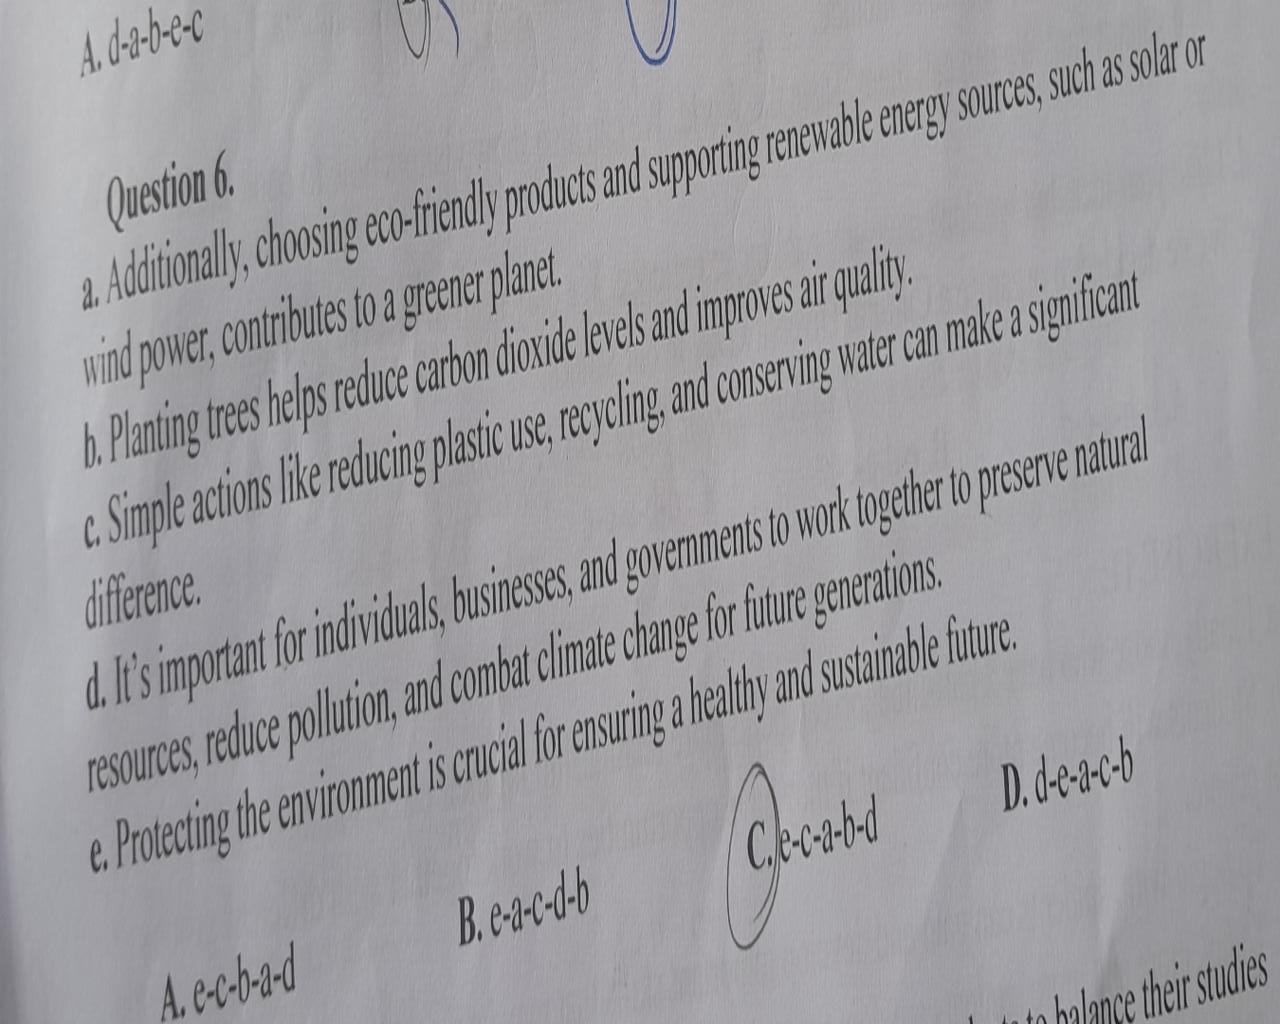 A. d-a-b-e-c
Question 6.
a. Additionally, choosing eco-friendly products and supporting renewable energy sources, such as solar or
wind power, contributes to a greener planet.
b. Planting trees helps reduce carbon dioxide levels and improves air quality.
c. Simple actions like reducing plastic use, recycling, and conserving water can make a significant
difference.
d. It's important for individuals, businesses, and governments to work together to preserve natural
resources, reduce pollution, and combat climate change for future generations.
e. Protecting the environment is crucial for ensuring a healthy and sustainable future.
A. e-c-b-a-d B. e-a-c-d-b C. e-c-a-b-d D. d-e-a-c-b
to balance their studies